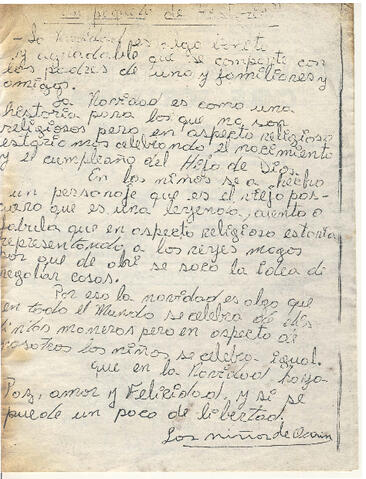 un poquito de historia
- La Navidad es algo bonito
y agradable que se comparte con
los padres de uno y familiares y
amigos.
La Navidad es como una
historia para los que no son
religiosos pero en aspecto religioso
estariamos celebrando el nacimiento
y el cumpleaño del Hijo de Dios.
En los niños se a hecho
un personaje que es el viejo pas-
cuero que es una leyenda, cuento o
fabula que en aspecto religioso estaria
representando a los reyes magos
por que de ahí se saco la idea de
regalar cosas.
Por eso la navidad es algo que
en todo el Mundo se celebra de dis-
tintas maneras pero en aspecto de
nosotros los niños, se celebra igual.
que en la Navidad haya
Paz, amor y Felicidad, y si se
puede un poco de libertad.
Los niños de